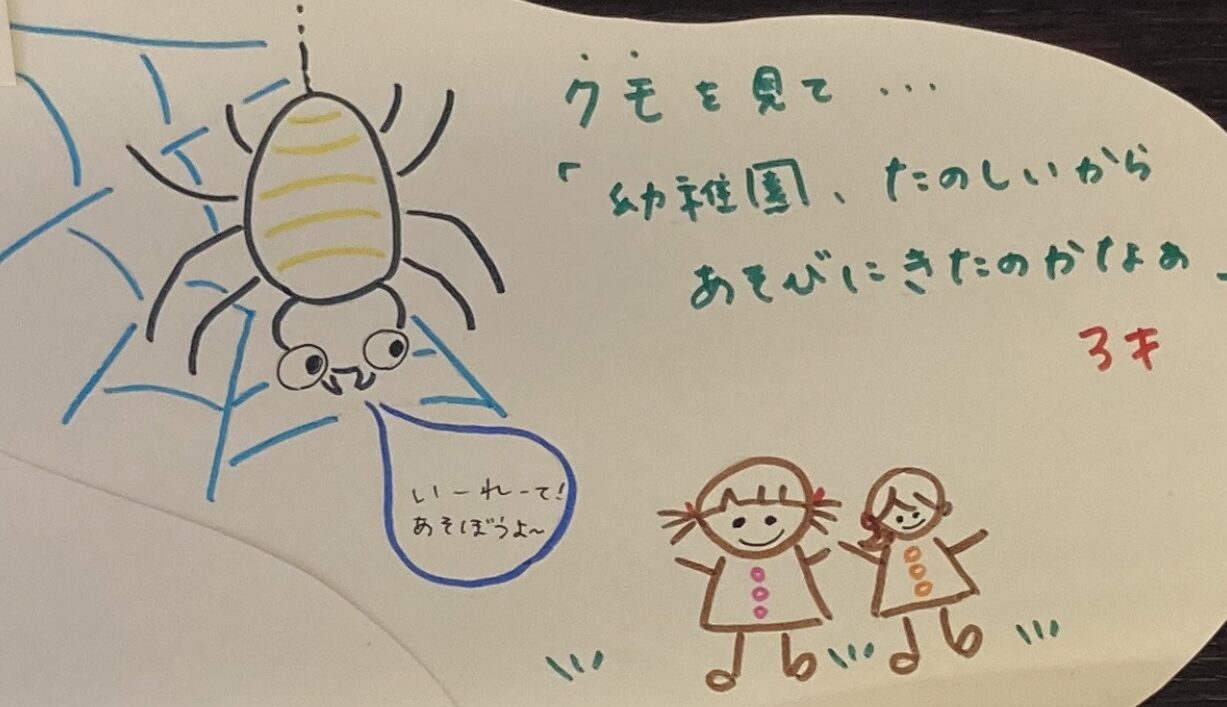 クモを見て…
「幼稚園、たのしいから
あそびにきたのかなぁ」
3才
いーれーて!
あそぼうよ~